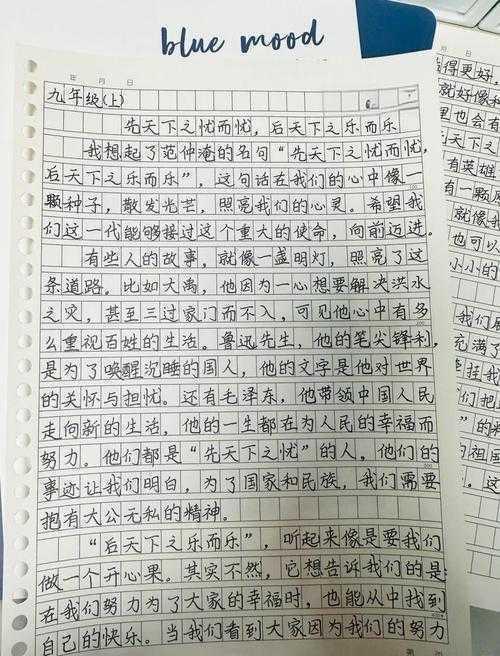 blue mood
年 月 日
九年级(上)
先天下之忧而忧，后天下之乐而乐
我想起了范仲淹的名句“先天下之忧而忧，
后天下之乐而乐”，这句话在我们的心中像一
颗种子，散发光芒，照亮我们的心灵。希望我
们这一代能够接过这个重大的使命，向前迈进。
有些人的故事，就像一盏明灯，照亮了这
条道路。比如大禹，他因为一心想要解决洪水
之灾，甚至三过家门而不入，可见他心中有多
么重视百姓的生活。鲁迅先生，他的笔尖锋利，
是为了唤醒沉睡的国人，他的文字是他对世界
的关怀与担忧。还有毛泽东，他带领中国人民
走向新的生活，他的一生都在为人民的幸福而
努力。他们都是“先天下之忧”的人。他们的
事迹让我们明白，为了国家和民族，我们需要
抱有大公无私的精神。
“后天下之乐而乐”，听起来像是要我们
做一个开心果。其实不然，它想告诉我们的是
在我们努力为了大家的幸福时，也能从中找到
自己的快乐。当我们看到大家因为我们的努力
得更好，
就好像
里也会有
天下之
有英雄
有一颗
就像我
也可以
小小的
充满了
牵挂我
们把
的祖国
。这